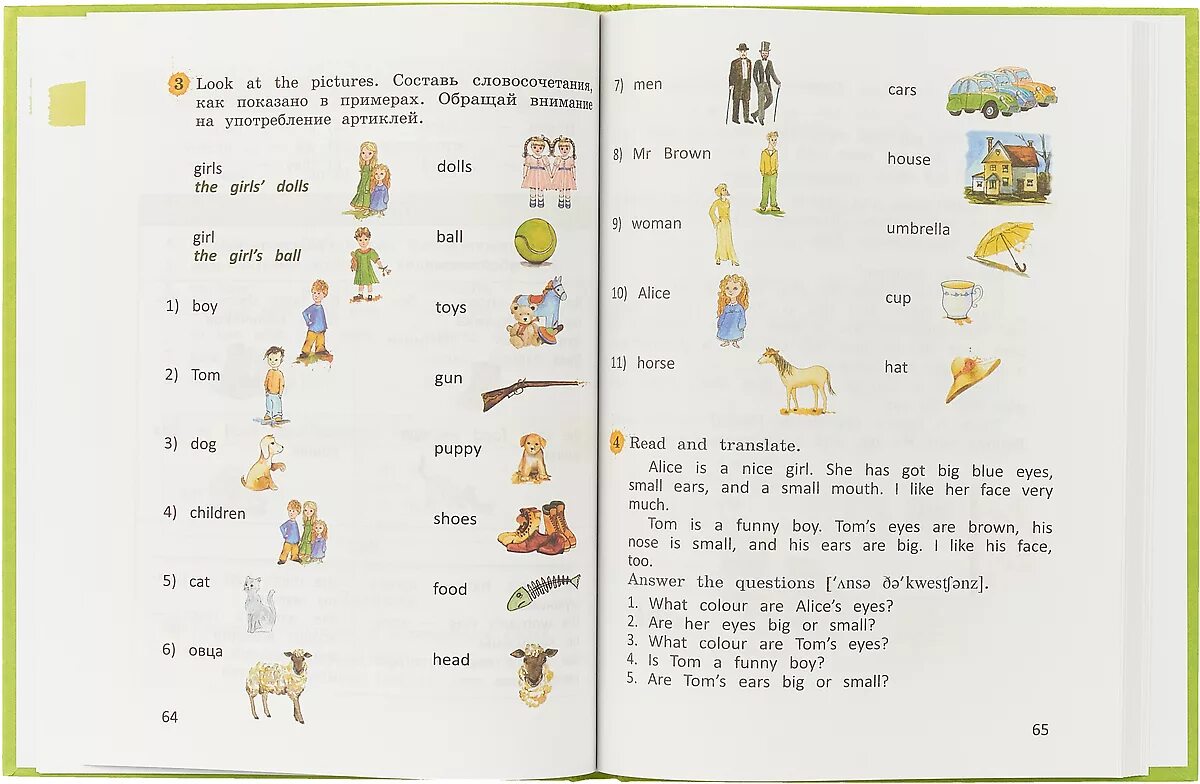 3 Look at the pictures. Составь словосочетания,
как показано в примерах. Обращай внимание
на употребление артиклей.
girls dolls
the girls' dolls
girl ball
the girl's ball
1) boy toys
2) Tom gun
3) dog puppy
4) children shoes
5) cat food
6) овца head
64
7) men cars
8) Mr Brown house
9) woman umbrella
10) Alice cup
11) horse hat
4 Read and translate.
Alice is a nice girl. She has got big blue eyes,
small ears, and a small mouth. I like her face very
much.
Tom is a funny boy. Tom's eyes are brown, his
nose is small, and his ears are big. I like his face,
too.
Answer the questions [ʹʌnsə ðəʹkwestʃənz].
1. What colour are Alice's eyes?
2. Are her eyes big or small?
3. What colour are Tom's eyes?
4. Is Tom a funny boy?
5. Are Tom's ears big or small?
65